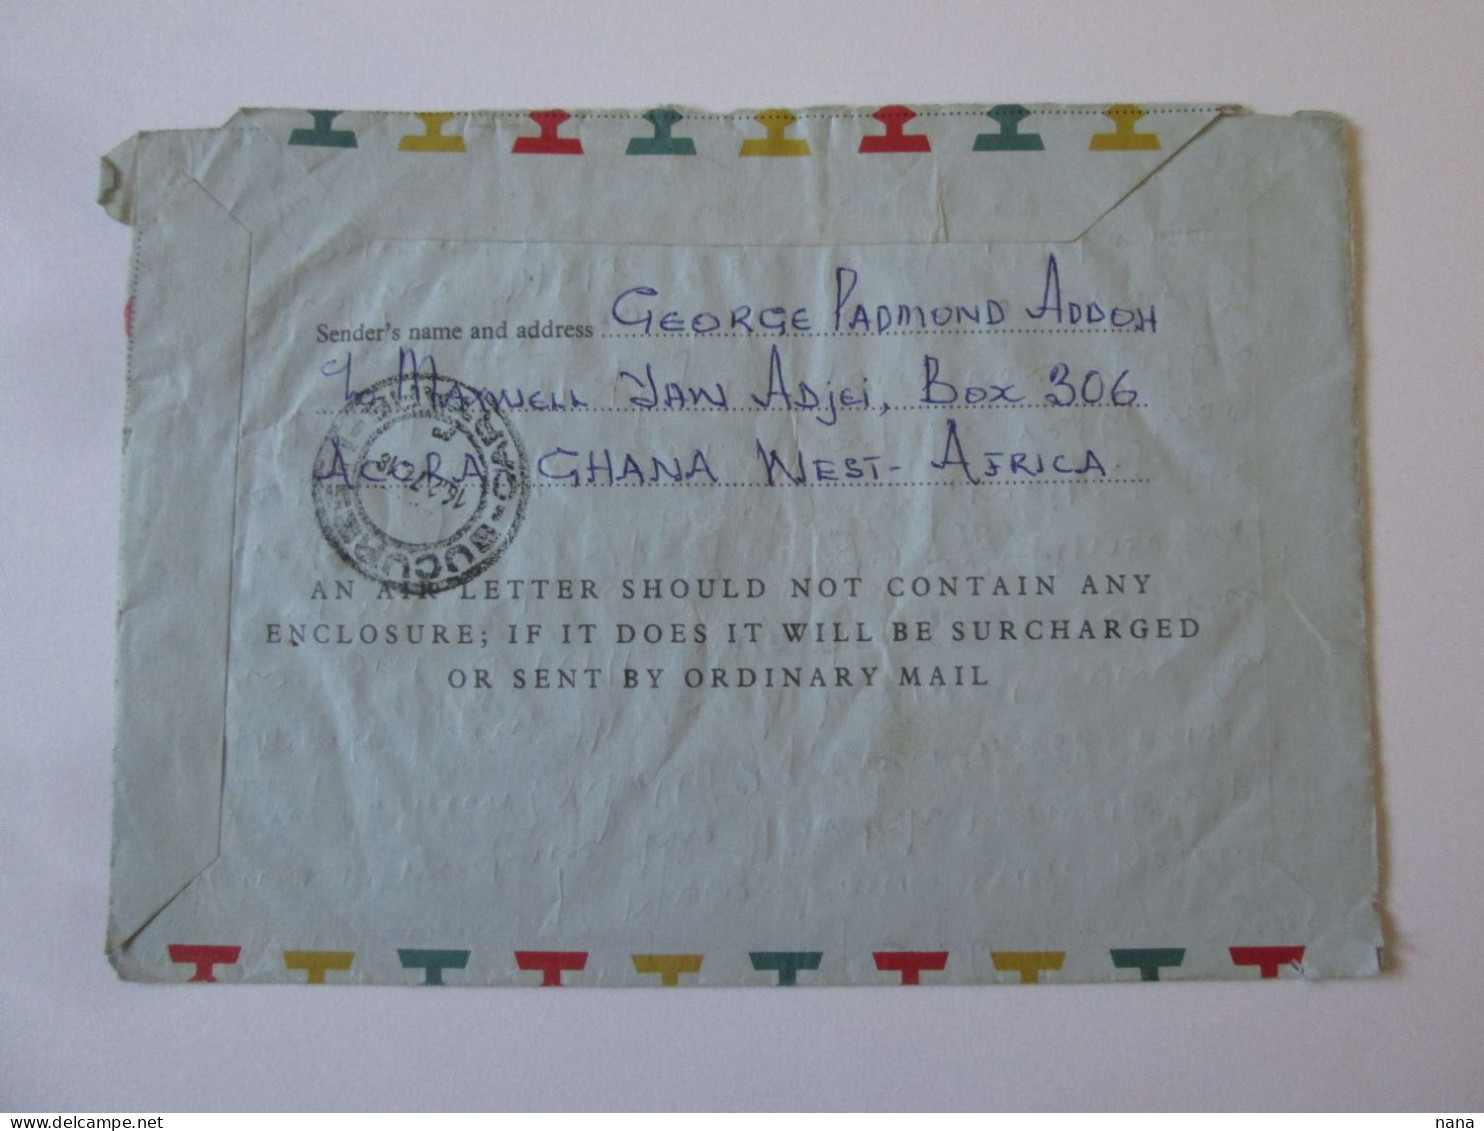 Sender's name and address GEORGE PADMOND ADDOH
c/o MAXWELL YAW ADJEI, BOX 306
ACCRA GHANA WEST-AFRICA.
AN AIR LETTER SHOULD NOT CONTAIN ANY
ENCLOSURE; IF IT DOES IT WILL BE SURCHARGED
OR SENT BY ORDINARY MAIL
delcampe.net
nana